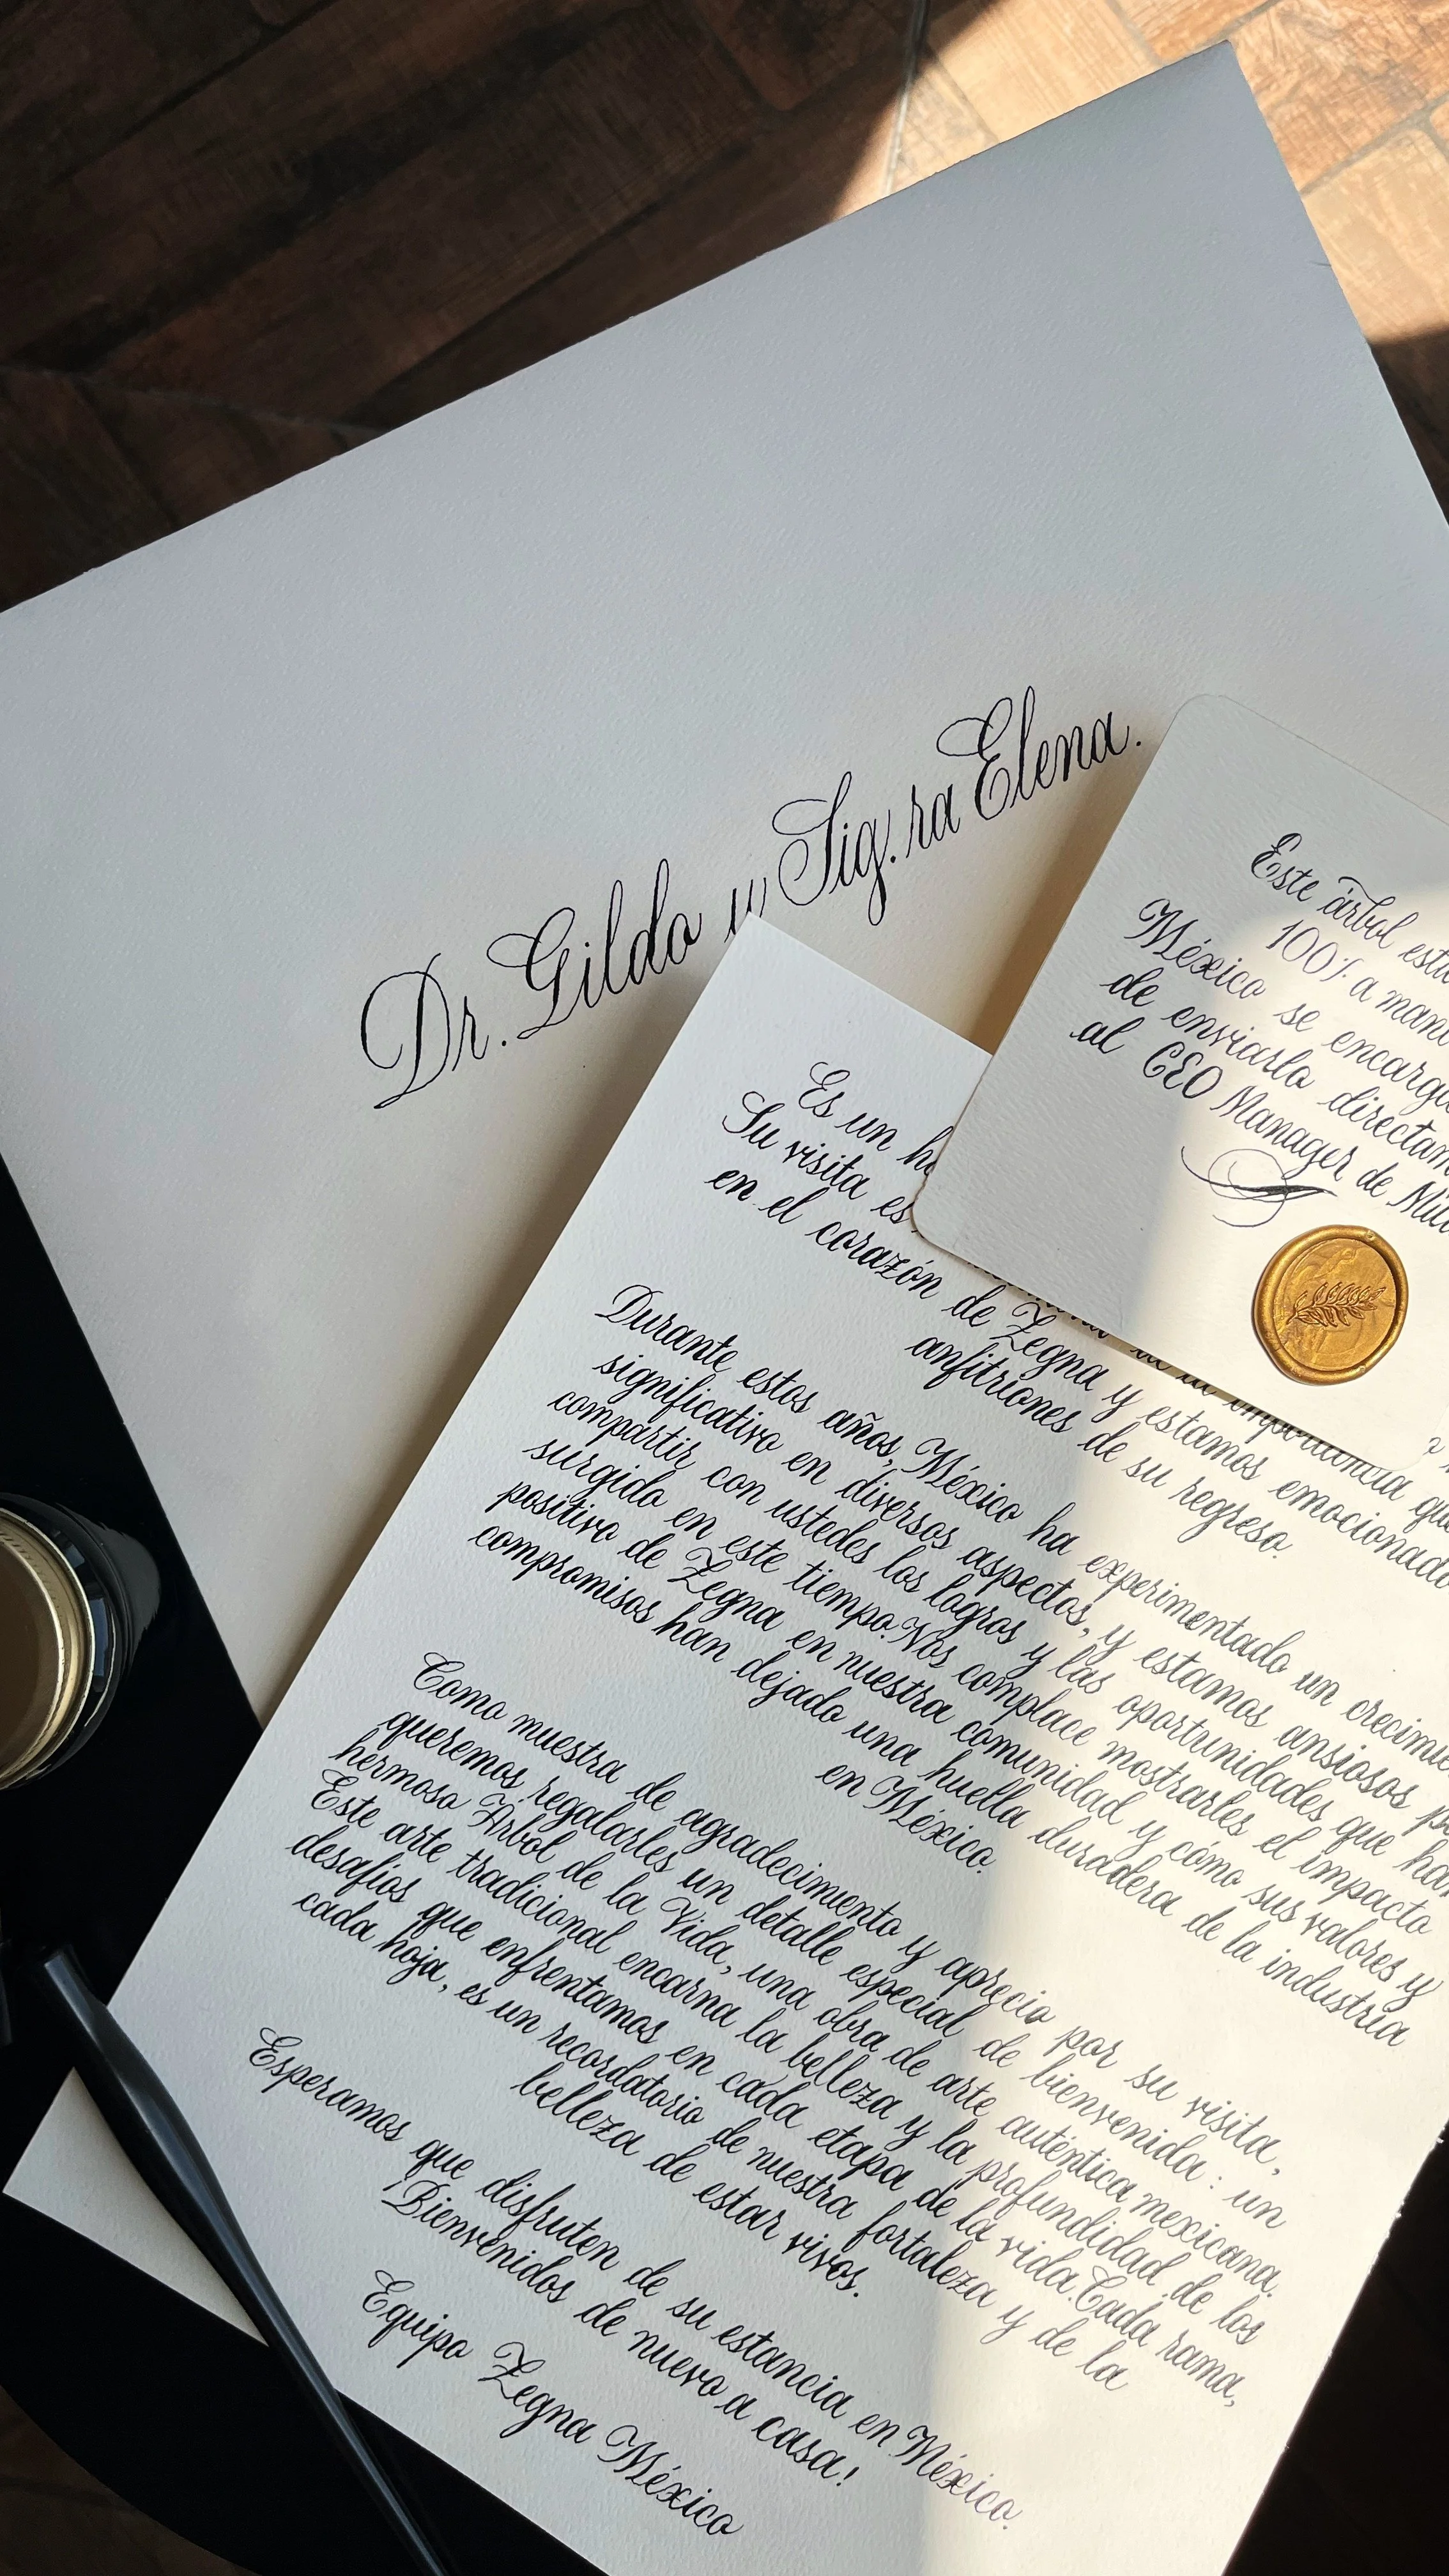 Dr. Gildo y Sig.ra Elena.
Este árbol
100% a
México se
de enviarlo
al CEO Manager de
Es un
Su visita es
en el corazón de Zegna y estamos
anfitriones de su regreso.
Durante estos años, México ha experimentado un
significativo en diversos aspectos, y estamos ansiosos
compartir con ustedes los logros y las oportunidades que han
surgido en este tiempo. Nos complace mostrarles el impacto
positivo de Zegna en nuestra comunidad y cómo sus valores y
compromisos han dejado una huella duradera de la industria
en México.
Como muestra de agradecimiento y aprecio por su visita,
queremos regalarles un detalle especial de bienvenida: un
hermoso Árbol de la Vida, una obra de arte auténtica mexicana.
Este arte tradicional encarna la belleza y la profundidad de los
desafíos que enfrentamos en cada etapa de la vida. Cada rama,
cada hoja, es un recordatorio de nuestra fortaleza y de la
belleza de estar vivos.
Esperamos que disfruten de su estancia en México.
Bienvenidos de nuevo a casa!
Equipo Zegna México